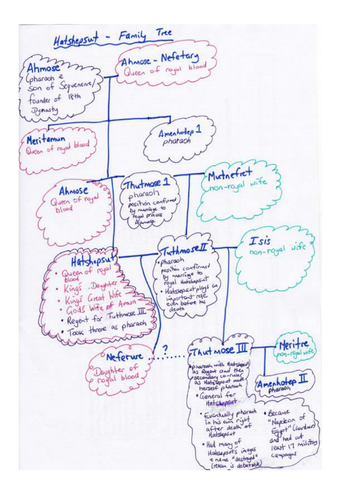 Hatshepsut - Family Tree
Ahmose
(pharaoh &
son of
founder of 18th
Dynasty
Ahmose-Nefetary
Queen of royal blood
Meritamun
Queen of royal blood
Amenhotep 1
pharaoh
Ahmose
Queen of royal
blood
Thutmose 1
pharaoh
position confirmed
by marriage to
royal
Ahmose
Mutnefret
non-royal wife
Hatshepsut
• Queen of royal
blood
• Kings Daughter
• Kings Great Wife
• Gods Wife of Amun
• Regent for Tuthmose III
• Took throne as pharaoh
Tuthmose II
• pharaoh
position confirmed
by marriage to
royal Hatshepsut
• Hatshepsut plays an
important role
even before his
death
Isis
non-royal wife
Neferure
Daughter of
royal blood
?
Thutmose III
• pharaoh with Hatshepsut
as Regent and then
secondary co-ruler
as Hatshepsut made
herself pharaoh
• General for
Hatshepsut
• Eventually pharaoh
in his own right
after death of
Hatshepsut
• Had many of
Hatshepsuts images
& name "destroyed"
(reason is debatable)
Meritre
non-royal wife
Amenhotep II
pharaoh
• Became
"Napoleon of
Egypt"
and had at
least 17 military
campaigns